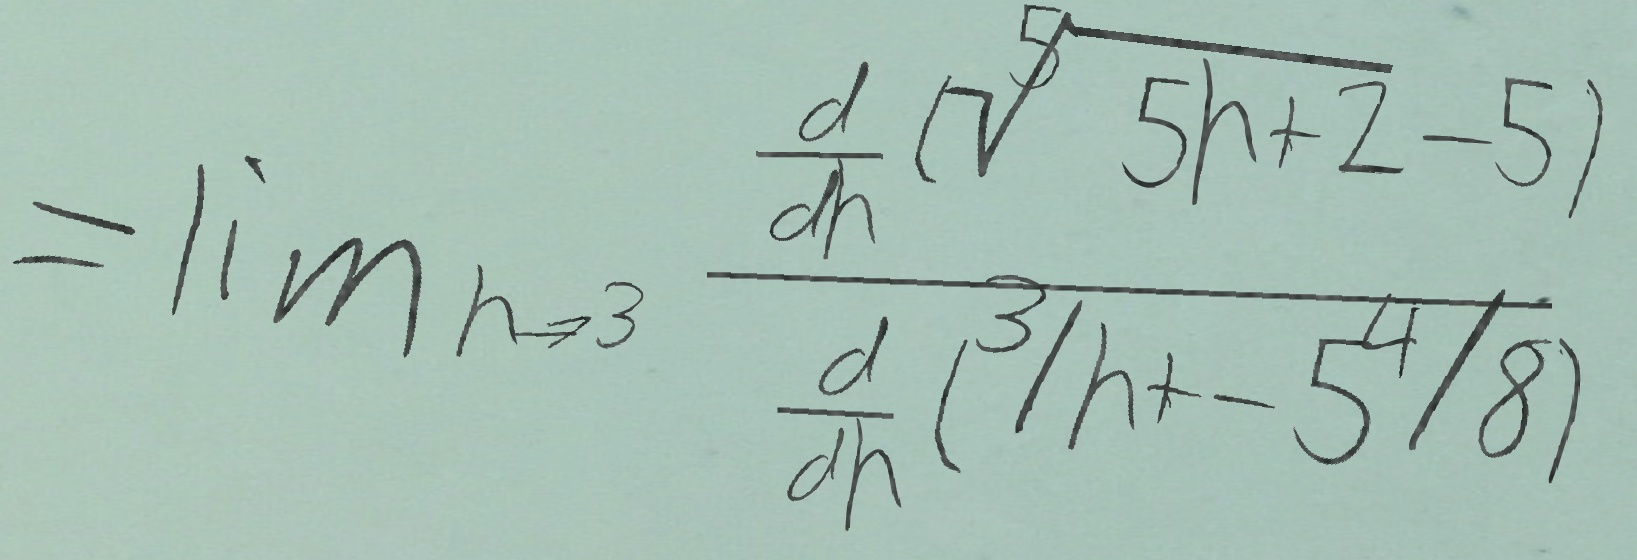 = lim_{h→3} \frac{\frac{d}{dh}(\sqrt[5]{5h+2}-5)}{\frac{d}{dh}(^3/h+-5^4/8)}